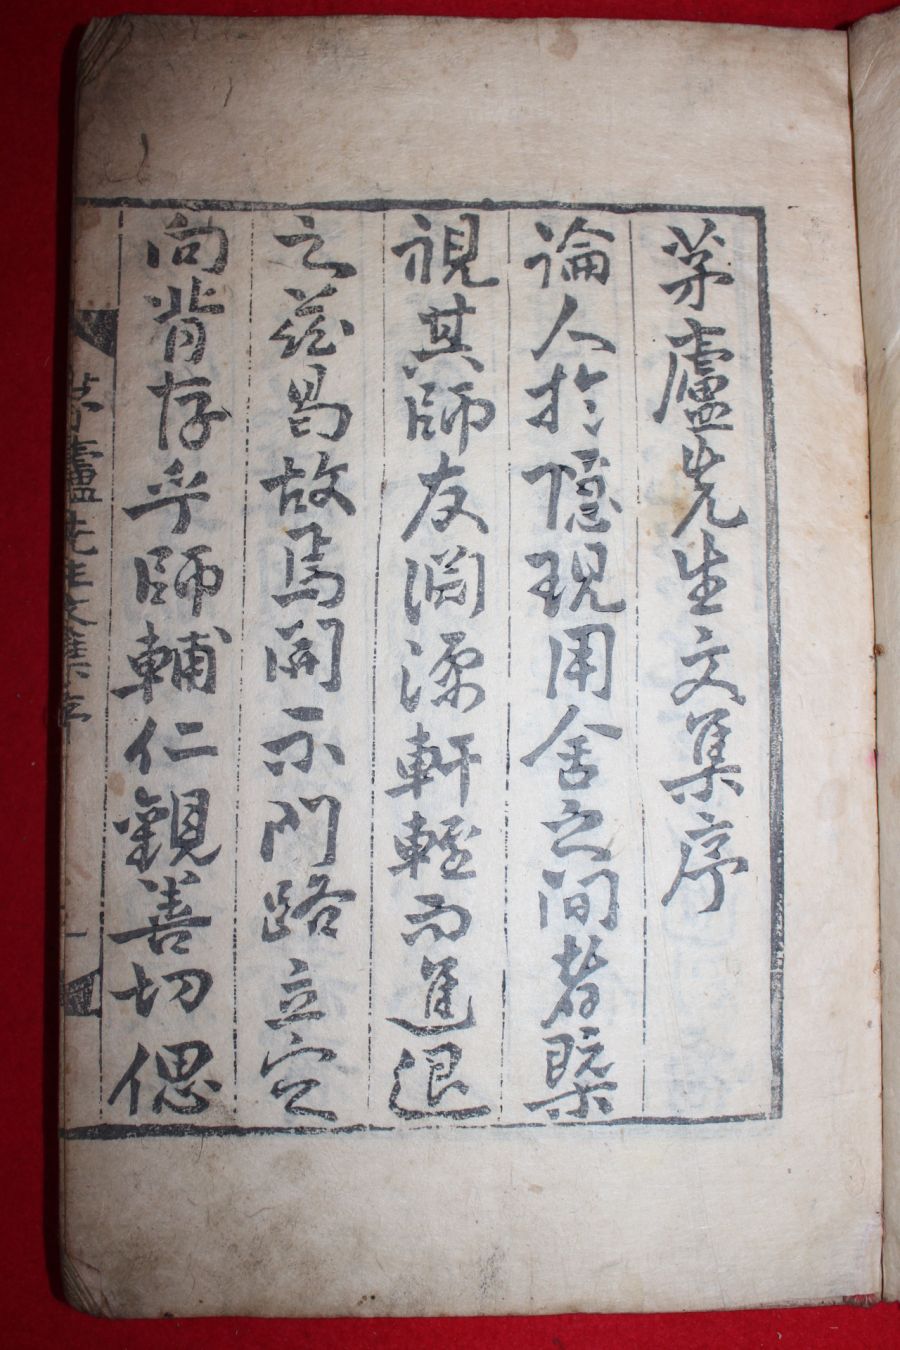 茅廬先生文集序
論人於隱現用舍之間者槩
視其師友淵源軒輊而進退
之茲曷故焉開示門路立定
向背存乎師輔仁觀善切偲
茅廬先生文集序
一